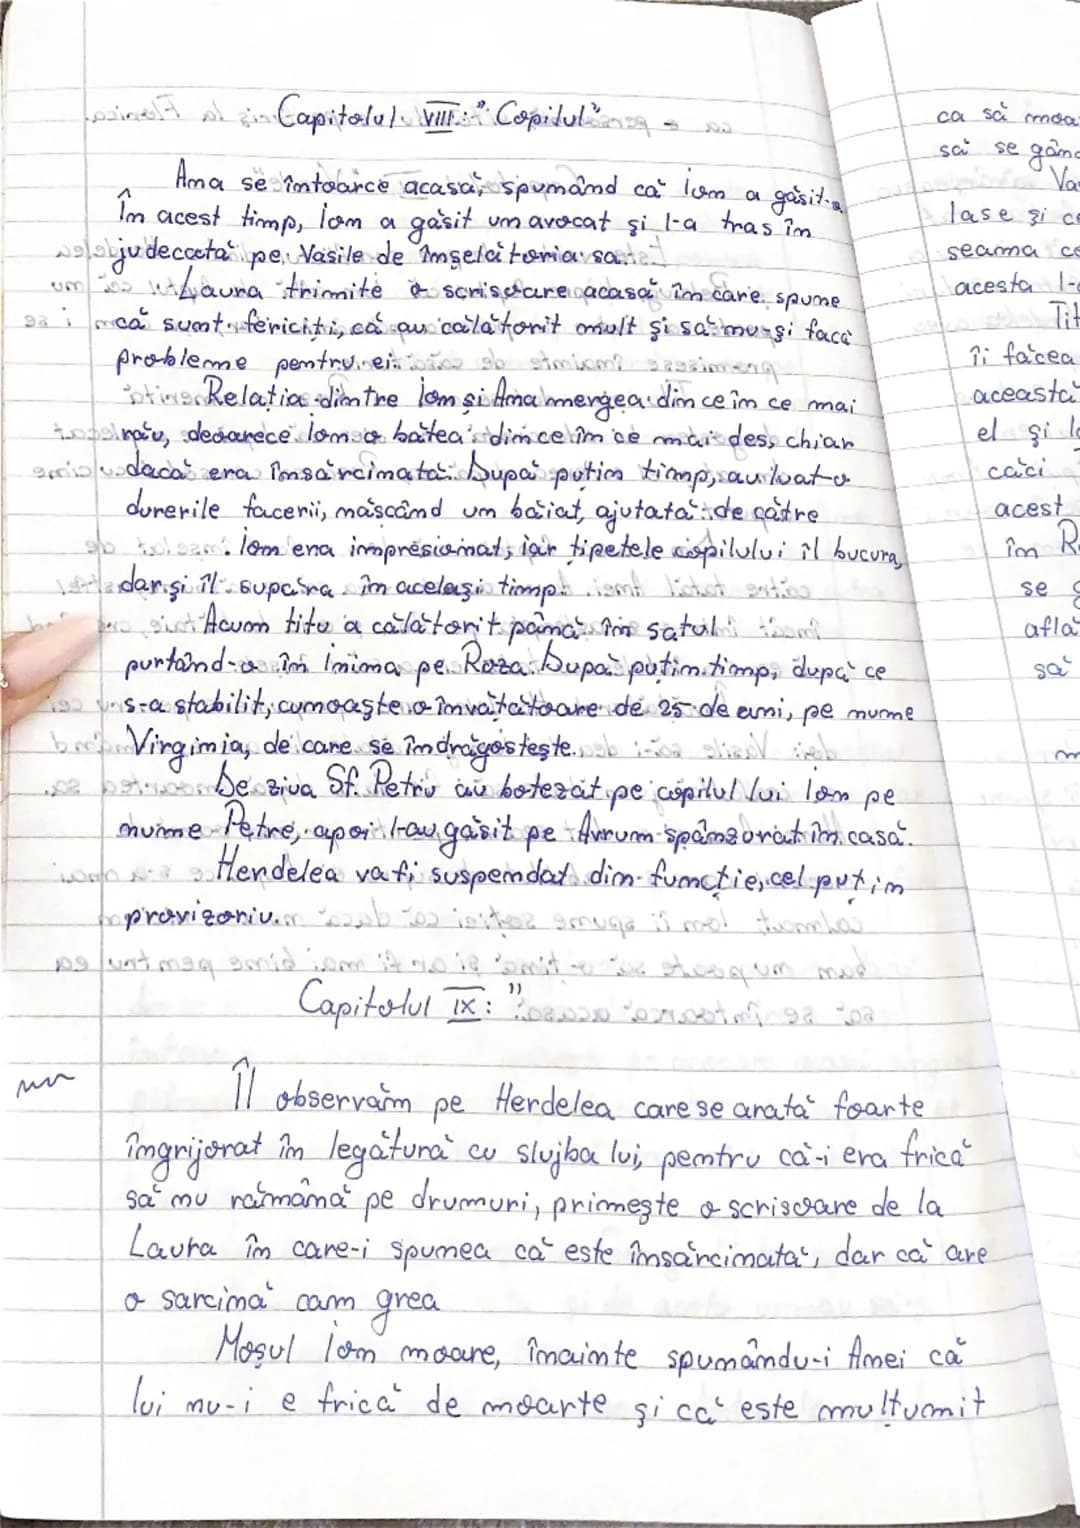 Capitolul VIII: "Copilul"
Ana se întoarce acasă, spunând că Ion a găsit-o
În acest timp, Ion a găsit un avocat și l-a tras în
judecată pe Vasile de înșelătoria sa.
Laura trimite o scrisoare acasă în care spune
că sunt fericiți, că au călătorit mult și să nu-și facă
probleme pentru ei.
Relația dintre Ion și Ana mergea din ce în ce mai
rău, deoarece Ion o bătea din ce în ce mai des, chiar
dacă era însărcinată. După puțin timp, au luat-o
durerile facerii, născând un băiat, ajutată de către
Ion era impresionat, iar țipetele copilului îl bucura,
dar și îl supăra în același timp.
Acum titu a călătorit până în satul
purtând-o în inima pe Roza. După puțin timp, după ce
s-a stabilit, cunoaște o învățătoare de 25 de ani, pe nume
Virginia, de care se îndrăgostește.
De ziua Sf. Petru au botezat pe copilul lui Ion pe
nume Petre, apoi l-au găsit pe Avrum spânzurat în casă.
Herdelea va fi suspendat din funcție, cel puțin
provizoriu.
Capitolul IX: "
Îl observăm pe Herdelea care se arată foarte
îngrijorat în legătură cu slujba lui, pentru că-i era frică
să nu rămână pe drumuri, primește o scrisoare de la
Laura în care-i spunea că este însărcinată, dar că are
o sarcină cam grea
Moșul Ion moare, înainte spunându-i Anei că
lui nu-i e frică de moarte și că este mulțumit
ca să
să se
lase și
seama
acesta
îi făcea
această
el și
căci
acest
în
se
să